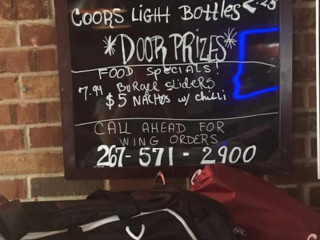 COORS LIGHT BOTTLES
*DOOR PRIZES*
FOOD SPECIALS!
7.99 BURGER SLIDERS
$5 NACHOS w/ CHILLI
CALL AHEAD FOR
WING ORDERS
267-571-2900